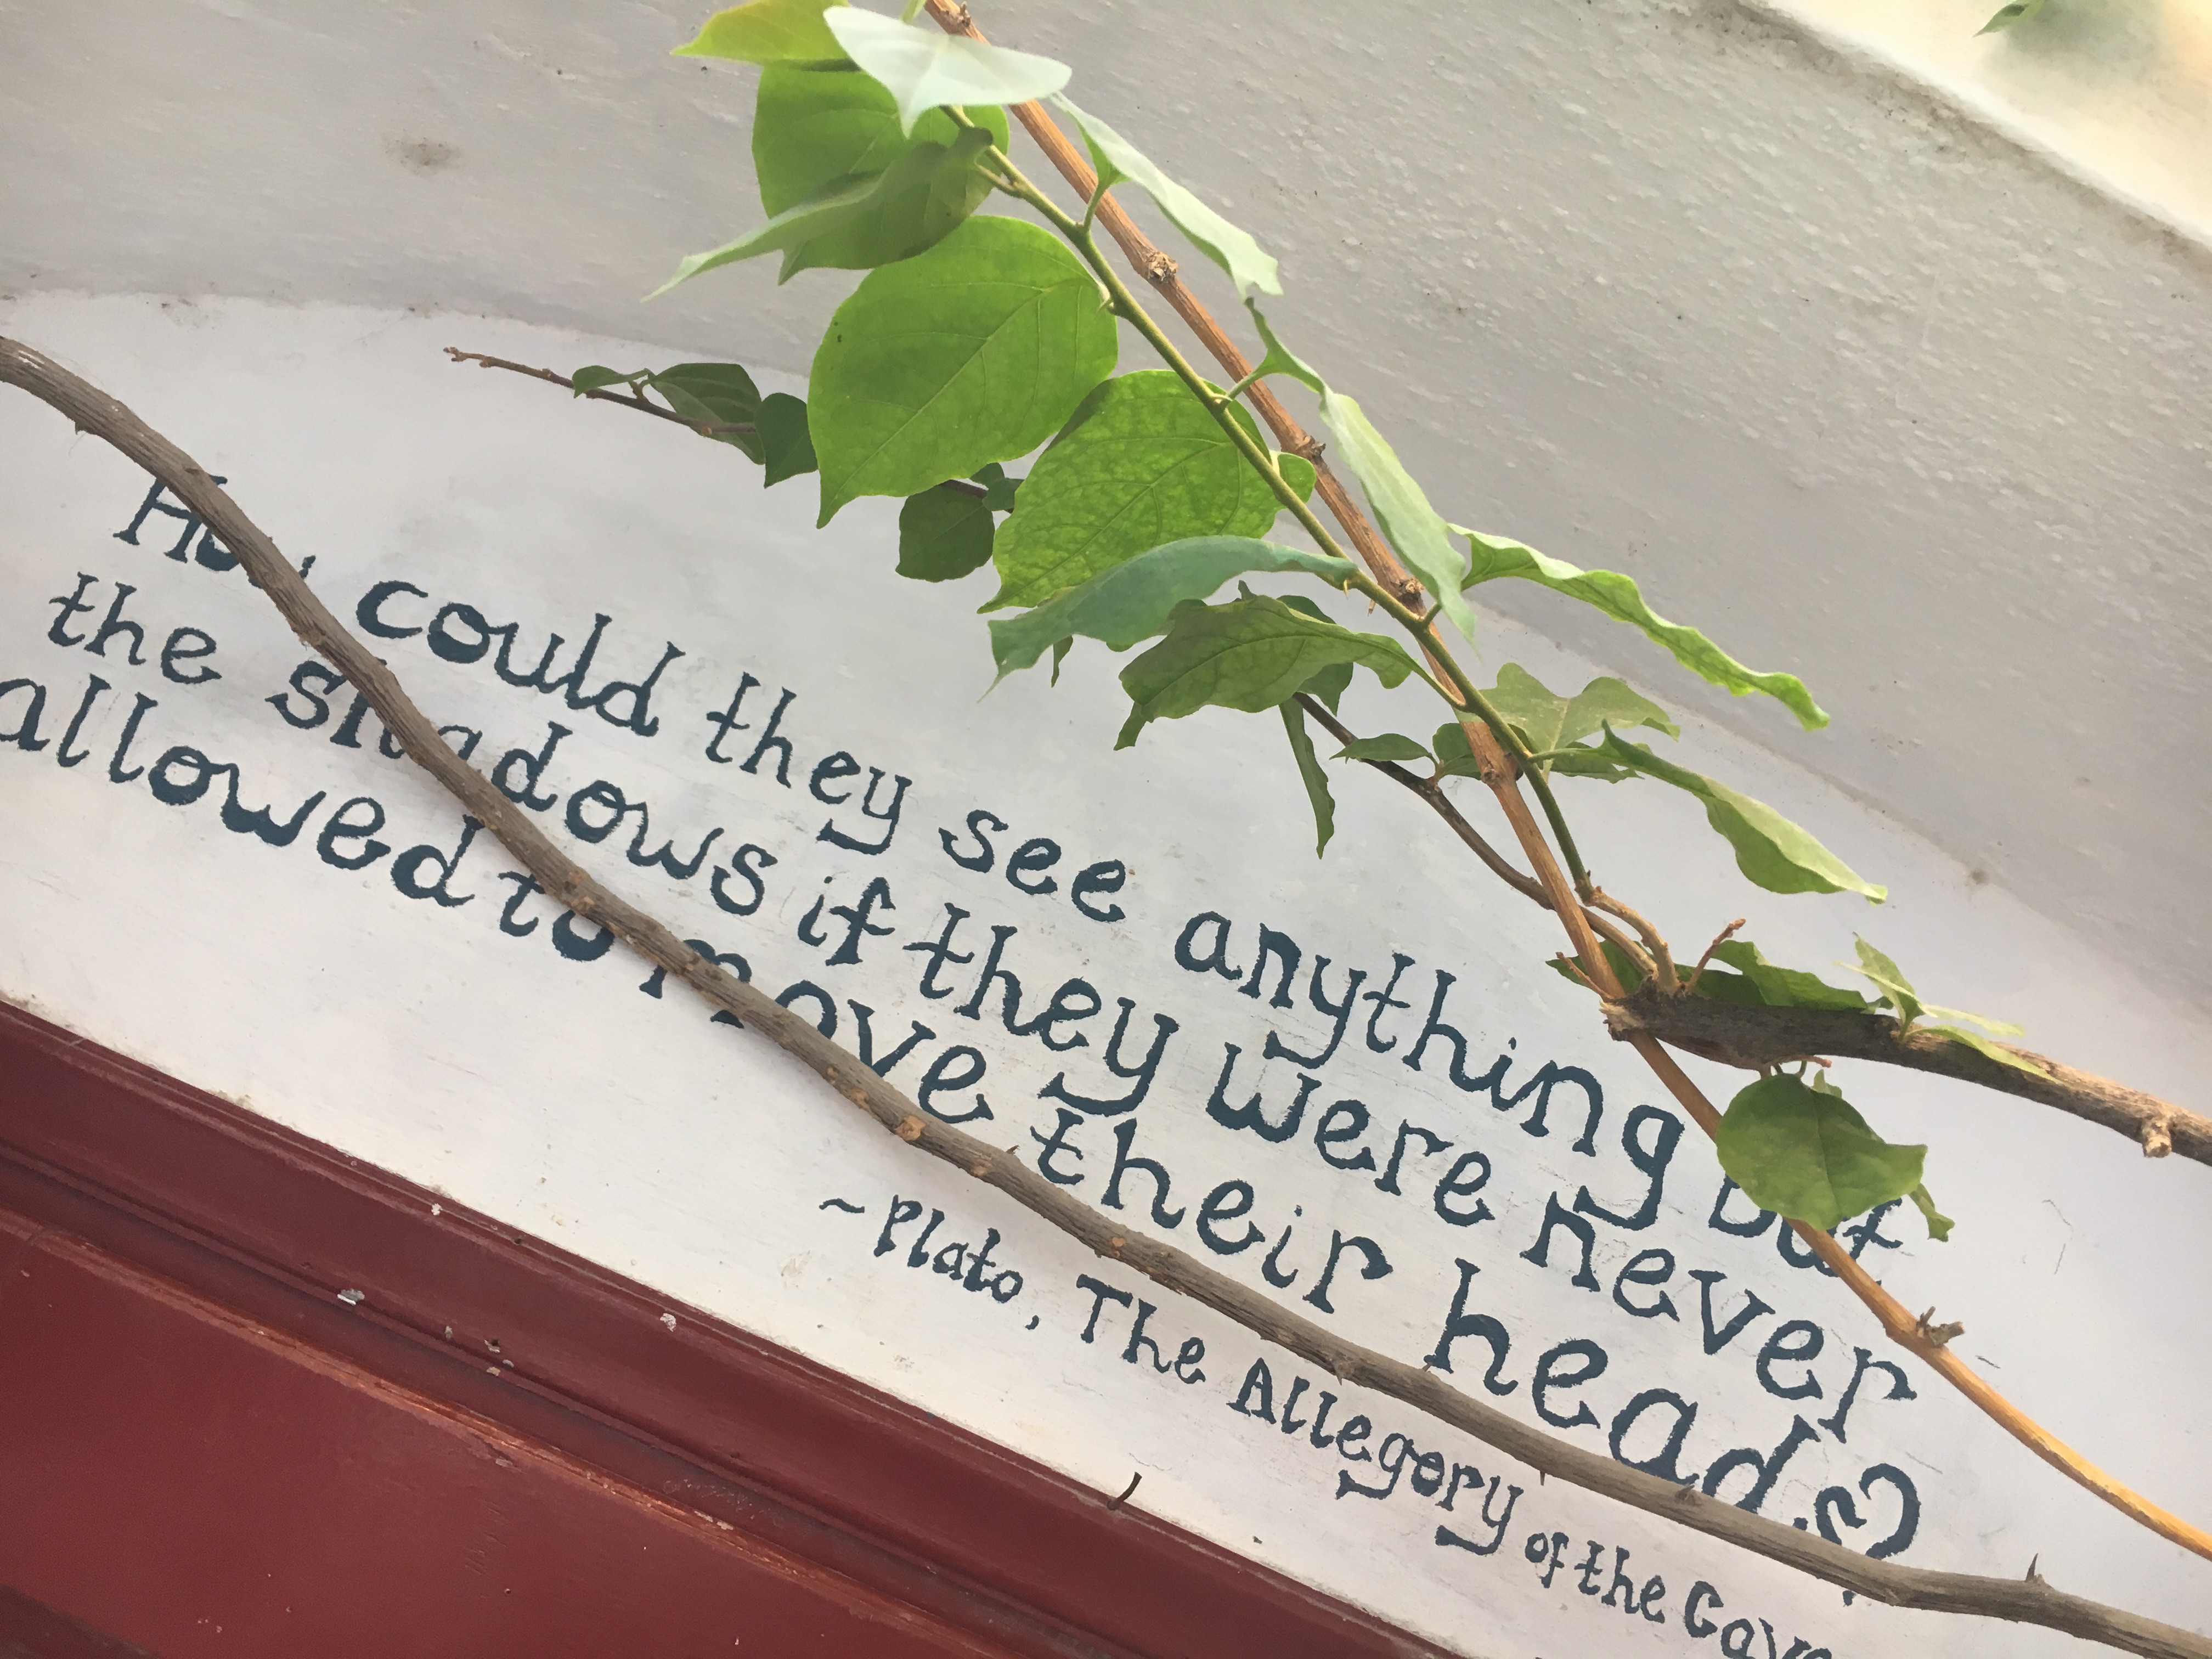 How could they see anything but
the shadows if they were never
allowed to move their head?
~Plato, The Allegory of the Cave